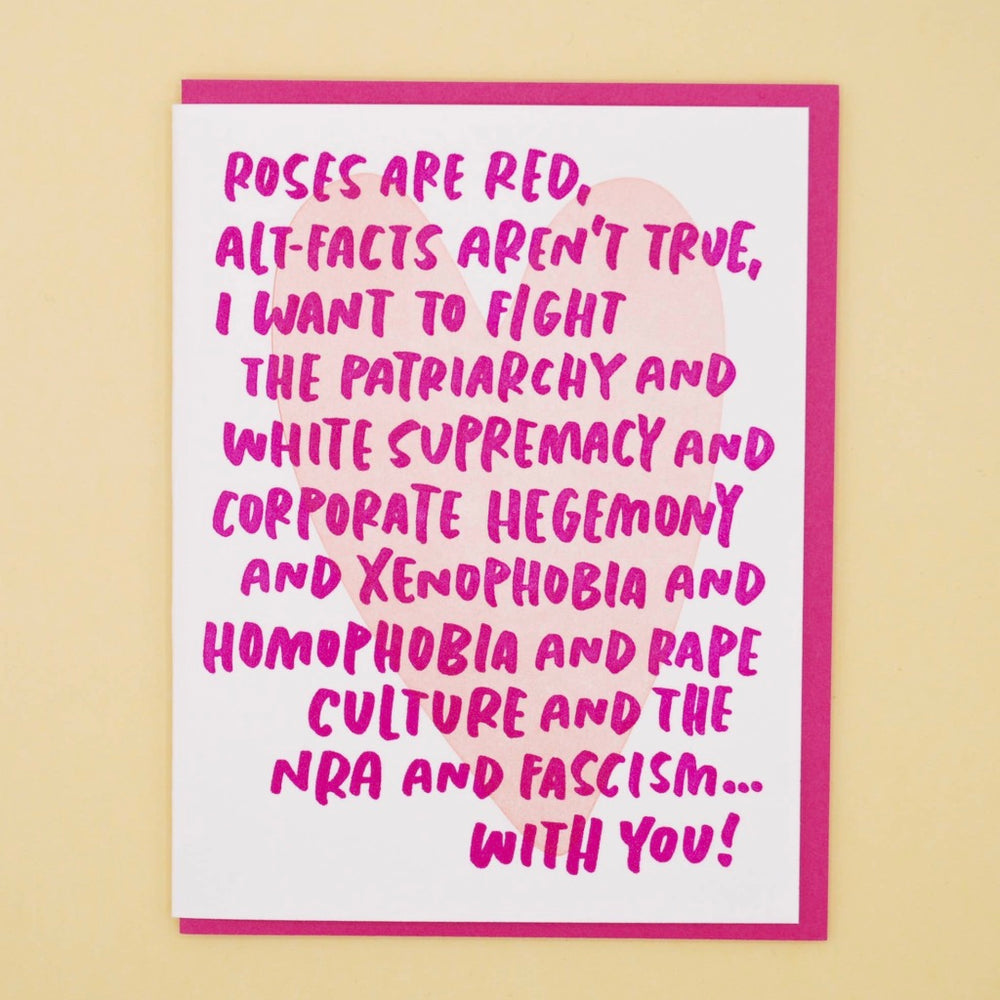 ROSES ARE RED,
ALT-FACTS AREN'T TRUE,
I WANT TO FIGHT
THE PATRIARCHY AND
WHITE SUPREMACY AND
CORPORATE HEGEMONY
AND XENOPHOBIA AND
HOMOPHOBIA AND RAPE
CULTURE AND THE
NRA AND FASCISM...
WITH YOU!